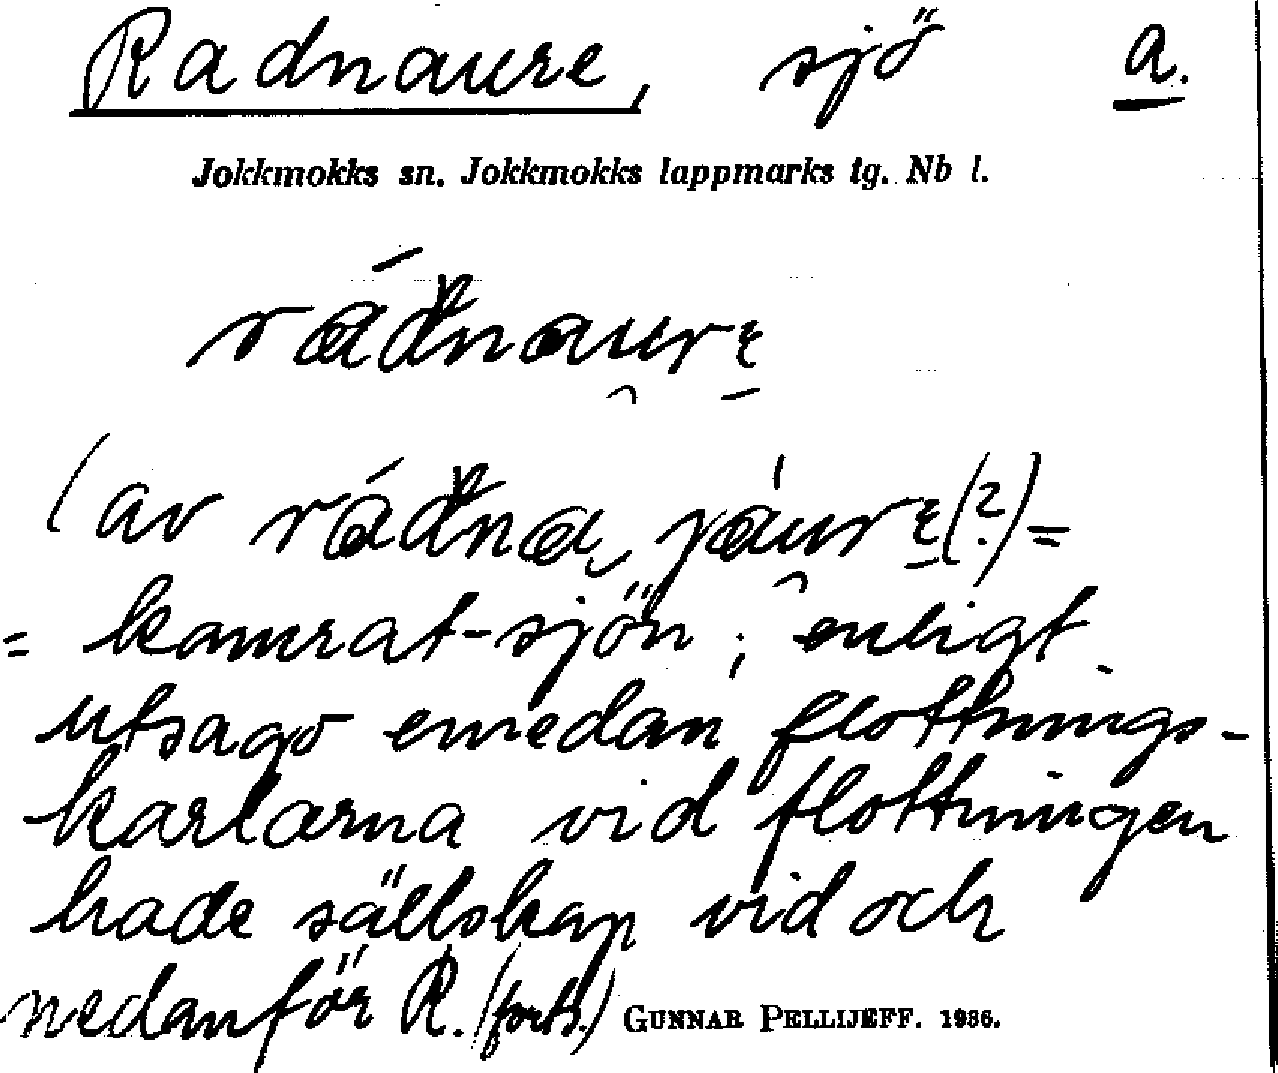 Radnaure, sjö a.
Jokkmokks sn. Jokkmokks lappmarks tg. Nb l.
ráđnaurε
(av ráđna jáurε(?)=
= kamrat-sjön; enligt
utsago emedan flottnings-
karlarna vid flottningen
hade sällskap vid och
nedanför R. (forts.) GUNNAR PELLIJEFF. 1936.